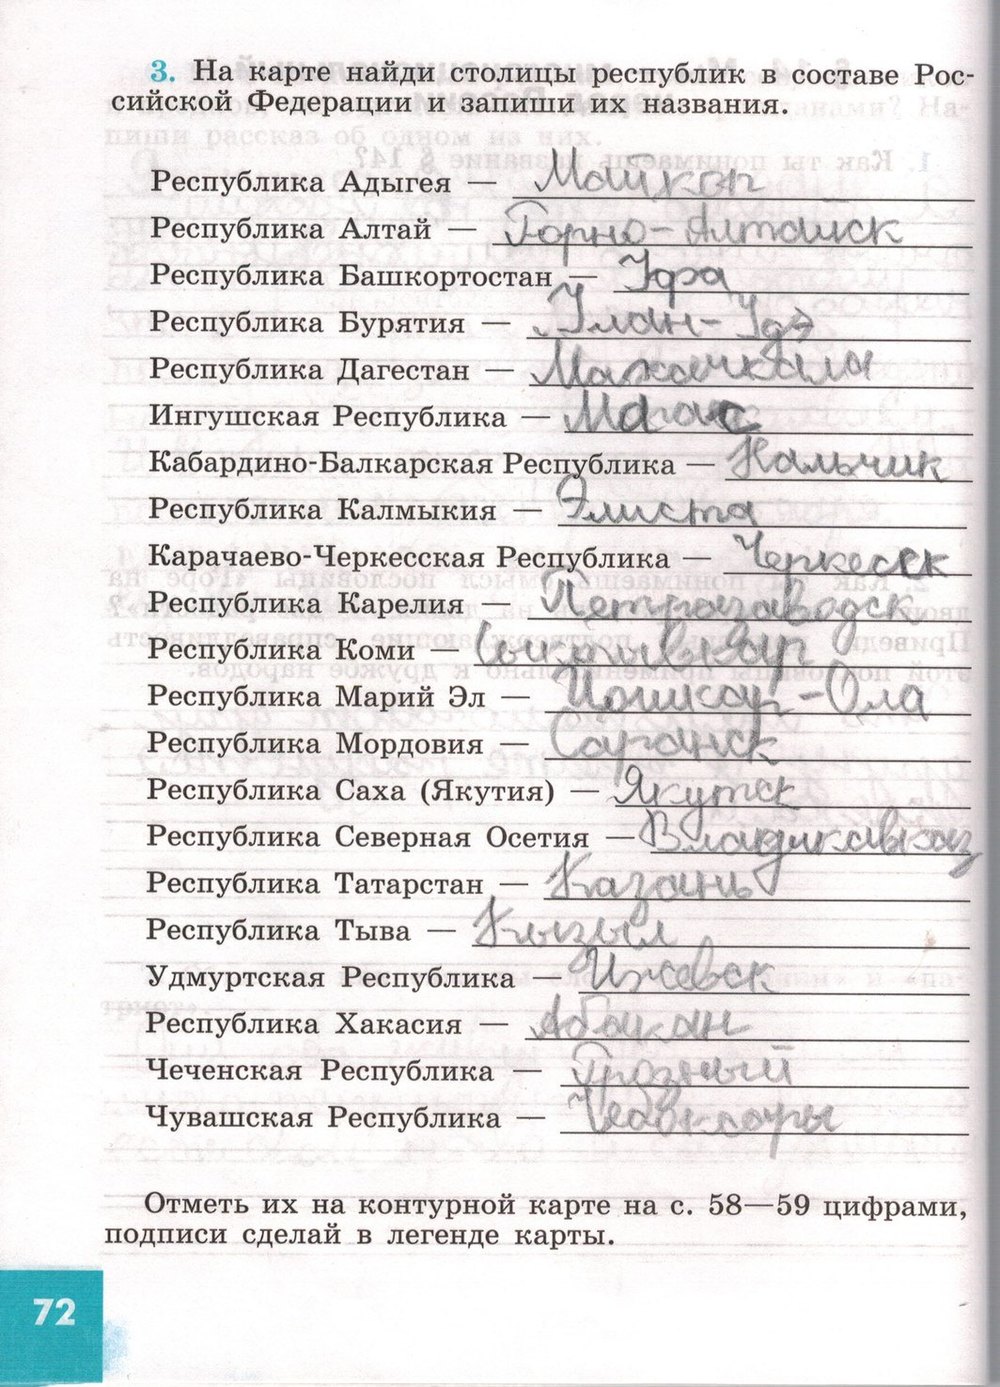 3. На карте найди столицы республик в составе Рос-
сийской Федерации и запиши их названия.
Республика Адыгея — Майкоп
Республика Алтай — Горно-Алтайск
Республика Башкортостан — Уфа
Республика Бурятия — Улан-Удэ
Республика Дагестан — Махачкала
Ингушская Республика — Магас
Кабардино-Балкарская Республика — Нальчик
Республика Калмыкия — Элиста
Карачаево-Черкесская Республика — Черкесск
Республика Карелия — Петрозаводск
Республика Коми — Сыктывкар
Республика Марий Эл — Йошкар-Ола
Республика Мордовия — Саранск
Республика Саха (Якутия) — Якутск
Республика Северная Осетия — Владикавказ
Республика Татарстан — Казань
Республика Тыва — Кызыл
Удмуртская Республика — Ижевск
Республика Хакасия — Абакан
Чеченская Республика — Грозный
Чувашская Республика — Чебоксары
Отметь их на контурной карте на с. 58—59 цифрами,
подписи сделай в легенде карты.
72